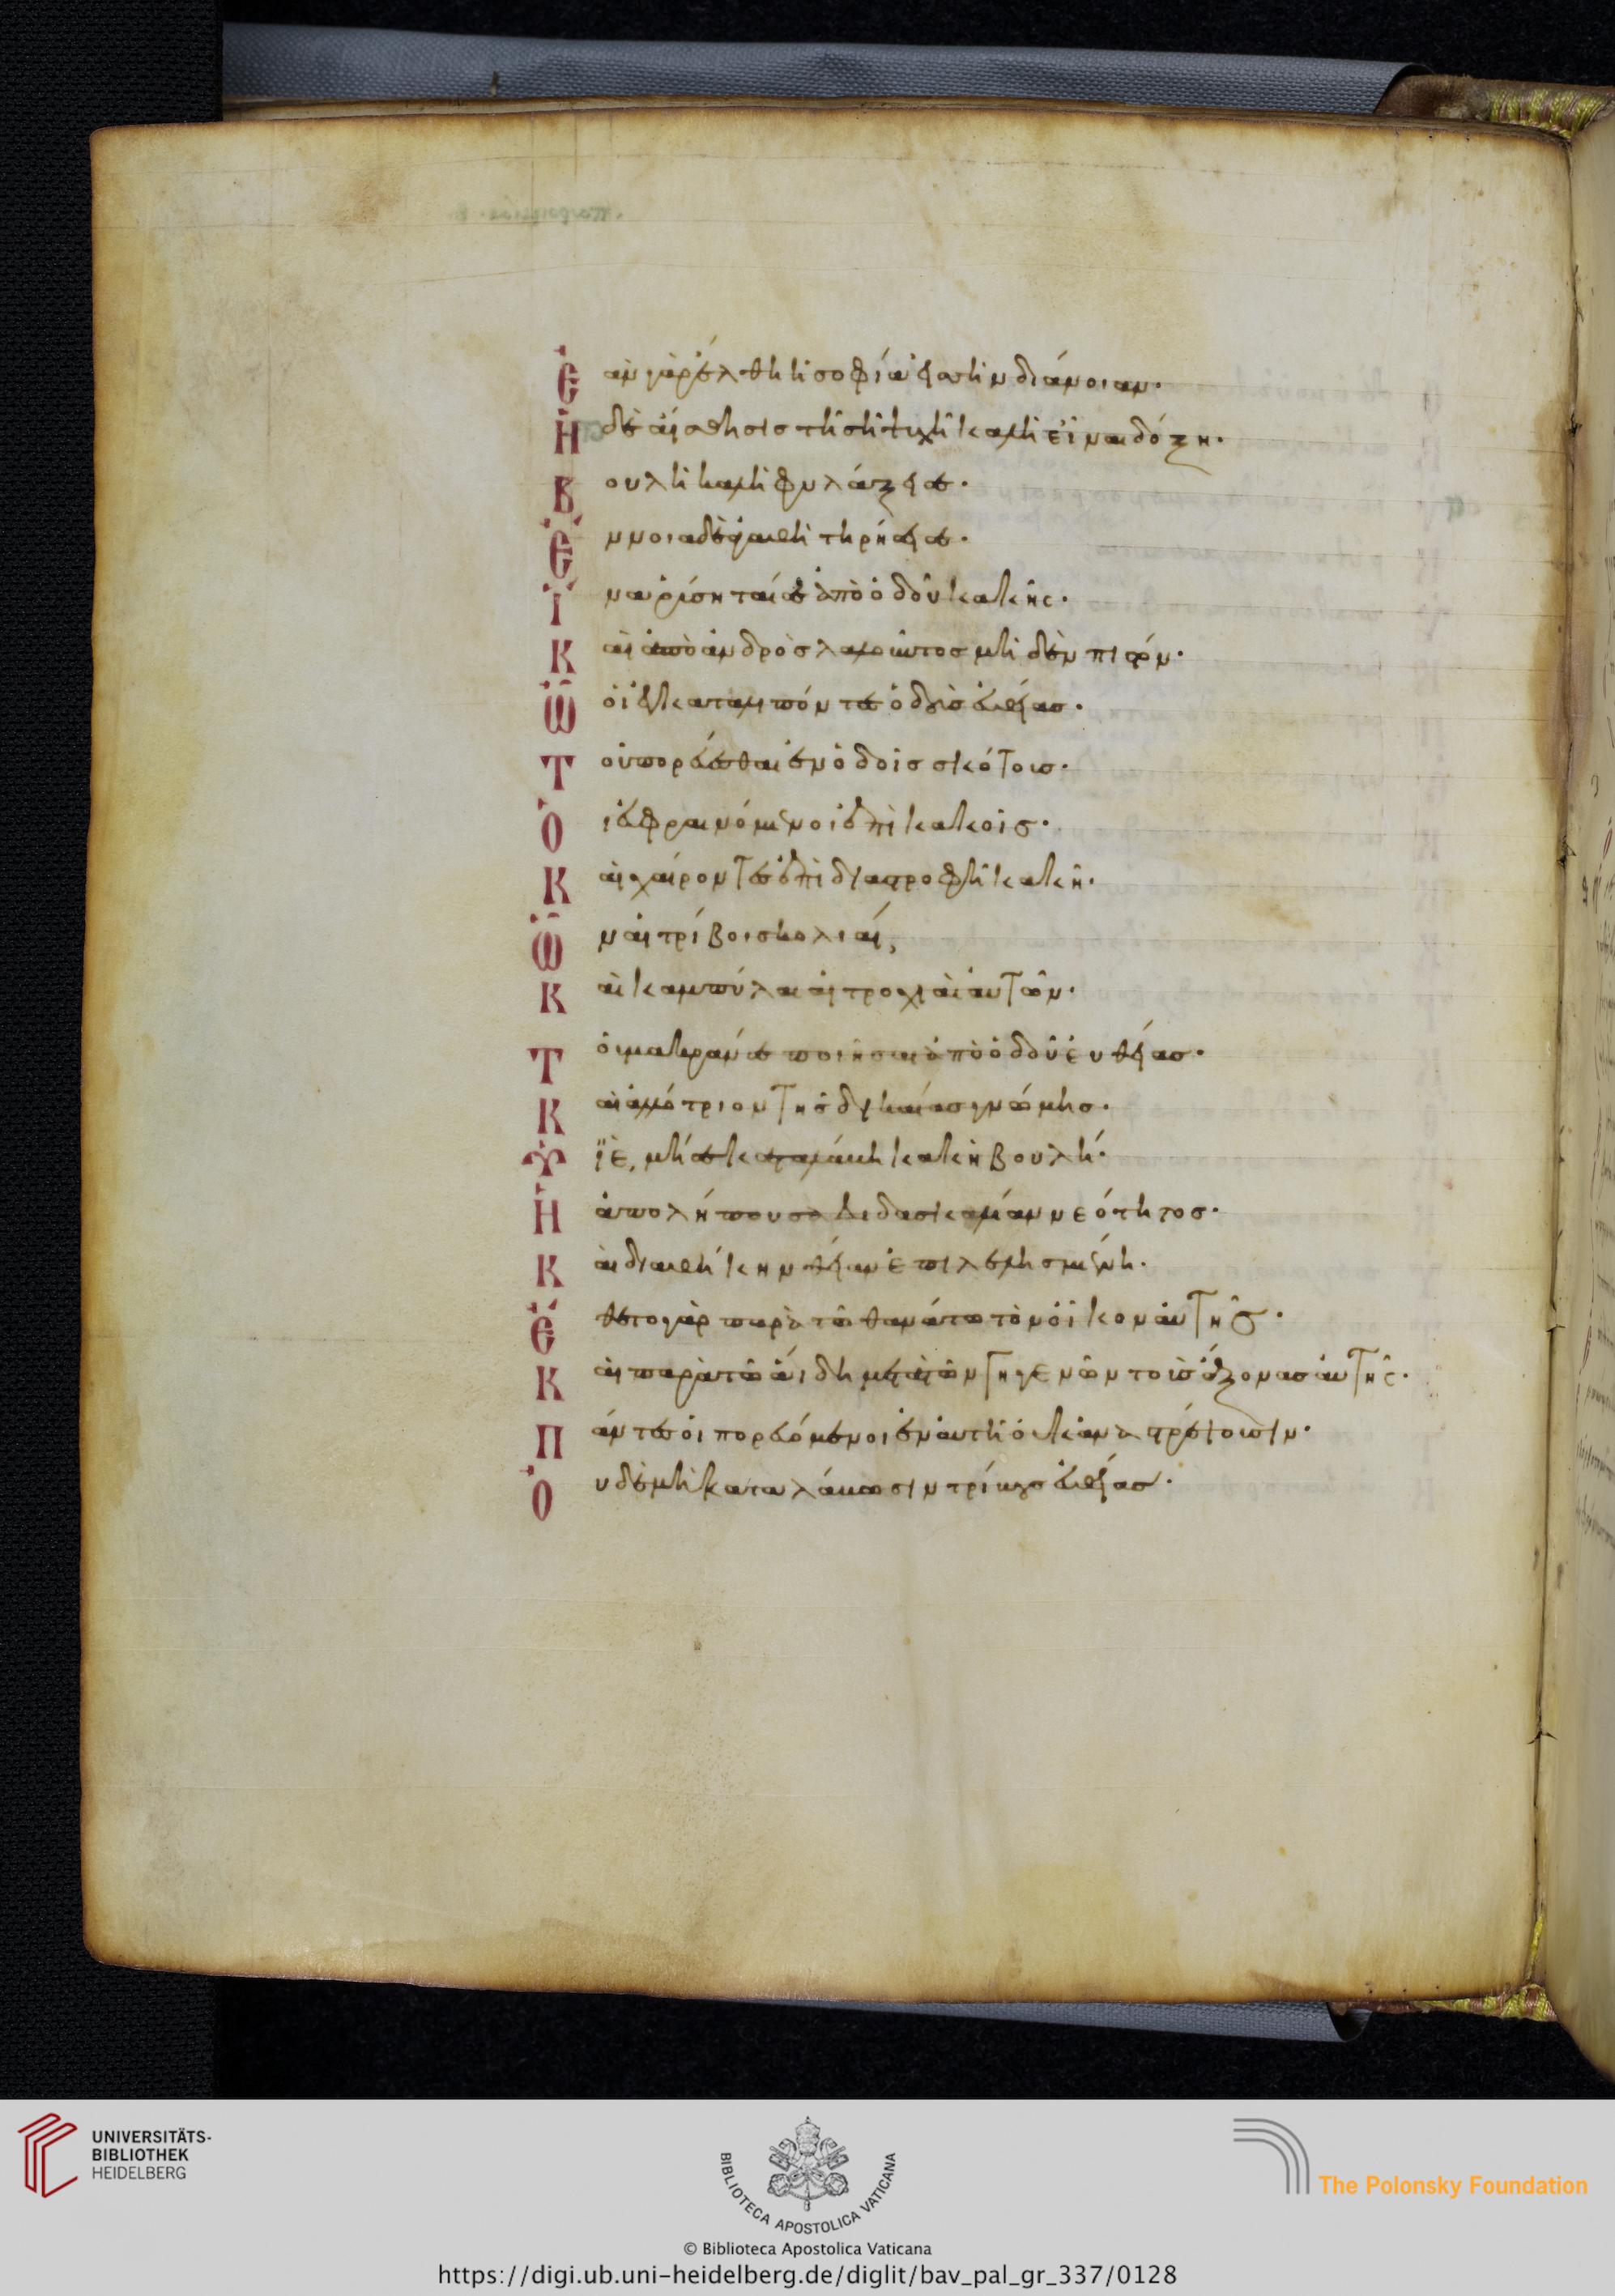 Ἐὰν γὰρ ἔλθη ἡ σοφία εἰς τὴν διάνοιαν·
Ἡ δὲ αἴσθησις τῆ σῆ ψυχῆ καλὴ εἶναι δόξη·
Βουλὴ καλὴ φυλάξει σε·
Ἔννοια δὲ ὁσία τηρήσει σε·
Ἵνα ῥύσηταί σε ἀπὸ ὁδοῦ κακῆς·
Καὶ ἀπὸ ἀνδρὸς λαλοῦντος μηδὲν πιστόν·
Ὢ οἱ ἐγκαταλιπόντες ὁδοὺς εὐθείας·
Τοῦ πορεύεσθαι ἐν ὁδοῖς σκότους·
Ὁι εὐφραινόμενοι ἐπὶ κακοῖς·
Καὶ χαίροντες ἐπὶ διαστροφῆ κακῆ·
Ὧν αἱ τρίβοι σκολιαί,
Καὶ καμπύλαι αἱ τροχιαὶ αὐτῶν·
Τοῦ μακράν σε ποιῆσαι ἀπὸ ὁδοῦ εὐθείας·
Καὶ ἀλλότριον τῆς δικαίας γνώμης·
Υἱὲ, μή σε καταλάβη κακὴ βουλή·
Ἡ ἀπολείπουσα διδασκαλίαν νεότητος·
Καὶ διαθήκην θείαν ἐπιλελησμένη·
Ἔθετο γὰρ παρὰ τῶ θανάτω τὸν οἶκον αὐτῆς·
Καὶ παρὰ τῶ ἅιδη μετὰ τῶν γηγενῶν τοὺς ἄξονας αὐτῆς·
Πάντες οἱ πορευόμενοι ἐν αὐτῆ οὐκ ἀναστρέψουσιν·
Οὐδὲ μὴ καταλάβωσιν τρίβους εὐθείας·
UNIVERSITÄTS-
BIBLIOTHEK
HEIDELBERG
BIBLIOTECA APOSTOLICA VATICANA
The Polonsky Foundation
© Biblioteca Apostolica Vaticana
https://digi.ub.uni-heidelberg.de/diglit/bav_pal_gr_337/0128